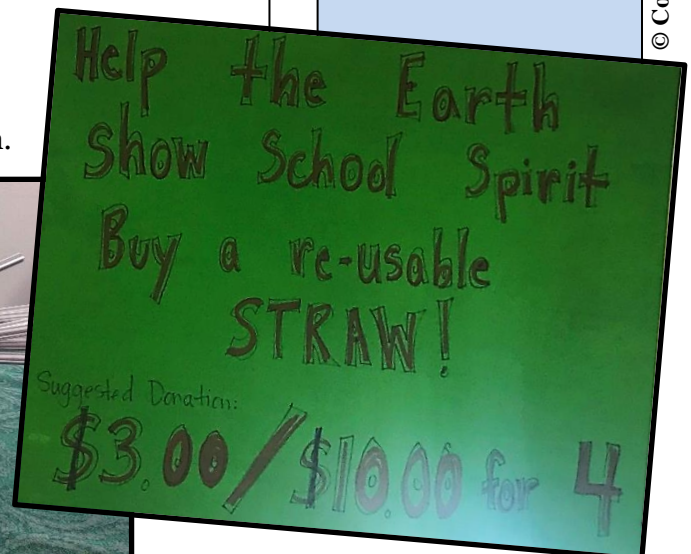 © Co
n.
Help the Earth
show School Spirit
Buy a re-usable
STRAW!
Suggested Donation:
$3.00/$10.00 for 4